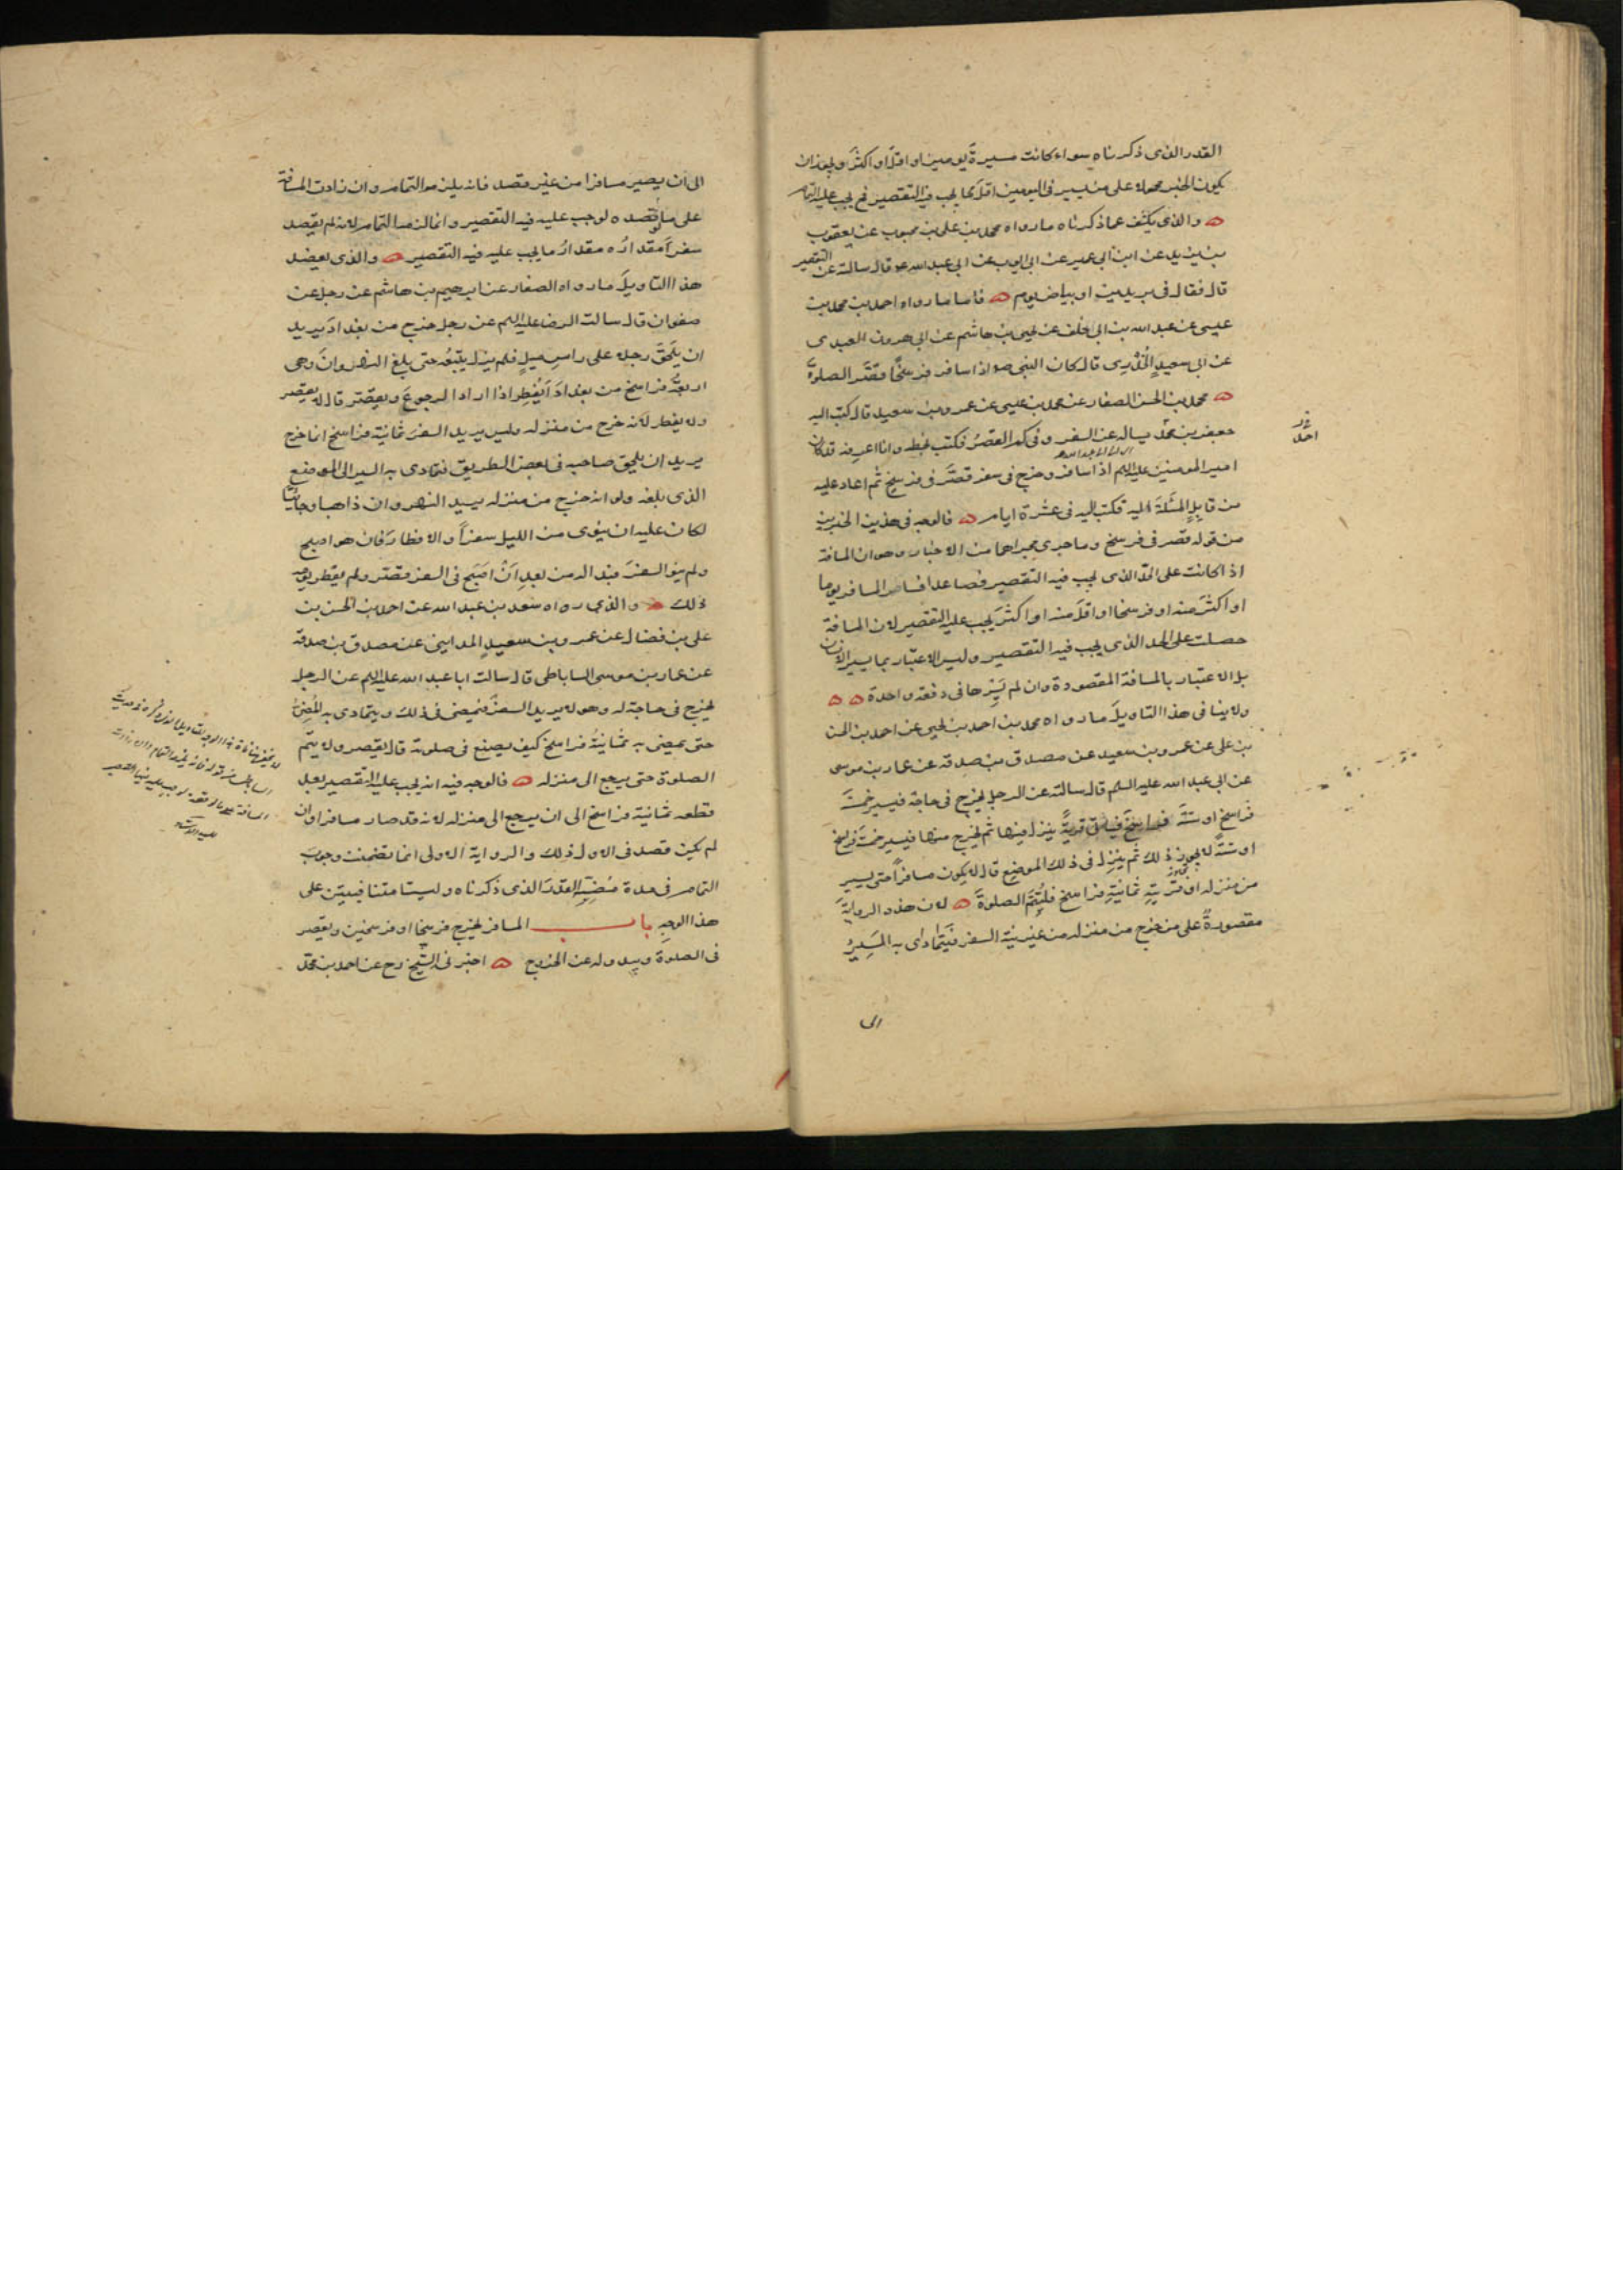 القدر الذى ذكرناه سواء كانت مسيرة يومين او اقل او اكثر ويجوز ان
يكون الخبر محمولا على من يسير فى اليومين اقل مما يجب فيه التقصير فح يجب عليه التمام
والذى يكشف عما ذكرناه ما رواه محمد بن على بن محبوب عن يعقوب
بن يزيد عن ابن ابى عمير عن ابى ايوب عن ابى عبد الله ع قال سالته عن التقصير
قال فقال فى بريدين او بياض يوم فاما ما رواه احمد بن محمد بن
عيسى عن عبد الله بن ابى خلف عن يحيى بن هاشم عن ابى هرون العبدى
عن ابى سعيد الخدرى قال كان النبى ص اذا سافر فرسخا قصر الصلوة
محمد بن الحسن الصفار عن محمد بن عيسى عن عمرو بن سعيد قال كتب اليه
جعفر بن محمد يساله عن السفر وفى كم القصر فكتب بخطه وانا اعرفه قد كان
امير المومنين عليه السلم اذا سافر وخرج فى سفر قصر فى فرسخ ثم اعاد عليه
من قابل المسئلة اليه فكتب اليه فى عشرة ايام فالوجه فى هذين الخبرين
من قوله قصر فى فرسخ وما جرى مجراهما من الاخبار وهو ان المسافة
اذا كانت على الحد الذى يجب فيه التقصير فصاعدا فسار المسافر يوما
او اكثر منه او فرسخا او اقل منه او اكثر يجب عليه التقصير لان المسافة
حصلت على الحد الذى يجب فيه التقصير وليس الاعتبار بما يسير الانسان
بل الاعتبار بالمسافة المقصودة وان لم يسرها فى دفعة واحدة
ولا ينافى هذا التاويل ما رواه محمد بن احمد بن يحيى عن احمد بن الحسن
بن على عن عمرو بن سعيد عن مصدق بن صدقة عن عمار بن موسى
عن ابى عبد الله عليه السلم قال سالته عن الرجل يخرج فى حاجة فيسير خمسة
فراسخ او ستة فراسخ فياتى قرية ينزل فيها ثم يخرج منها فيسير خمسة فراسخ
او ستة لا يجوز ذلك ثم ينزل فى ذلك الموضع قال لا يكون مسافرا حتى يسير
من منزله او قريته ثمانية فراسخ فليتم الصلوة لان هذه الرواية
مقصورة على من خرج من منزله من غير نية السفر فيتمادى به المسير
الى
الى ان يصير مسافرا من غير قصد فانه يلزمه التمام وان زادت المسافة
على ما لو قصده لوجب عليه فيه التقصير وانما لزمه التمام لانه لم يقصد
سفرا مقداره مقدار ما يجب عليه فيه التقصير والذى يعضد
هذا التاويل ما رواه الصفار عن ابرهيم بن هاشم عن رجل عن
صفوان قال سالت الرضا عليه السلم عن رجل خرج من بغداد يريد
ان يلحق رجلا على راس ميل فلم يزل يتبعه حتى بلغ النهروان وهى
اربعة فراسخ من بغداد ايفطر اذا اراد الرجوع ويقصر قال لا يقصر
ولا يفطر لانه خرج من منزله وليس يريد السفر ثمانية فراسخ انما خرج
يريد ان يلحق صاحبه فى بعض الطريق فتمادى به السير الى الموضع
الذى بلغه ولو انه خرج من منزله يريد النهروان ذاهبا وجائيا
لكان عليه ان ينوى من الليل سفرا والافطار فان هو اصبح
ولم ينو السفر فبدا له من بعد ان اصبح فى السفر قصر ولم يفطر يومه
ذلك والذى رواه سعد بن عبد الله عن احمد بن الحسن بن
على بن فضال عن عمرو بن سعيد المدائنى عن مصدق بن صدقة
عن عمار بن موسى الساباطى قال سالت ابا عبد الله عليه السلم عن الرجل
يخرج فى حاجة له وهو لا يريد السفر فيمضى فى ذلك ويتمادى به المضى
حتى يمضى به ثمانية فراسخ كيف يصنع فى صلوته قال يقصر ولا يتم
الصلوة حتى يرجع الى منزله فالوجه فيه انه يجب عليه التقصير بعد
قطعه ثمانية فراسخ الى ان يرجع الى منزله لانه قد صار مسافرا وان
لم يكن قصد فى الاول ذلك والرواية الاولى انما تضمنت وجوب
التمام فى مدة مضيه القدر الذى ذكرناه وليستا متنافيتين على
هذا الوجه باب المسافر يخرج فرسخا او فرسخين ويقصر
فى الصلوة ويبدو له عن الخروج اخبرنى الشيخ رح عن احمد بن محمد